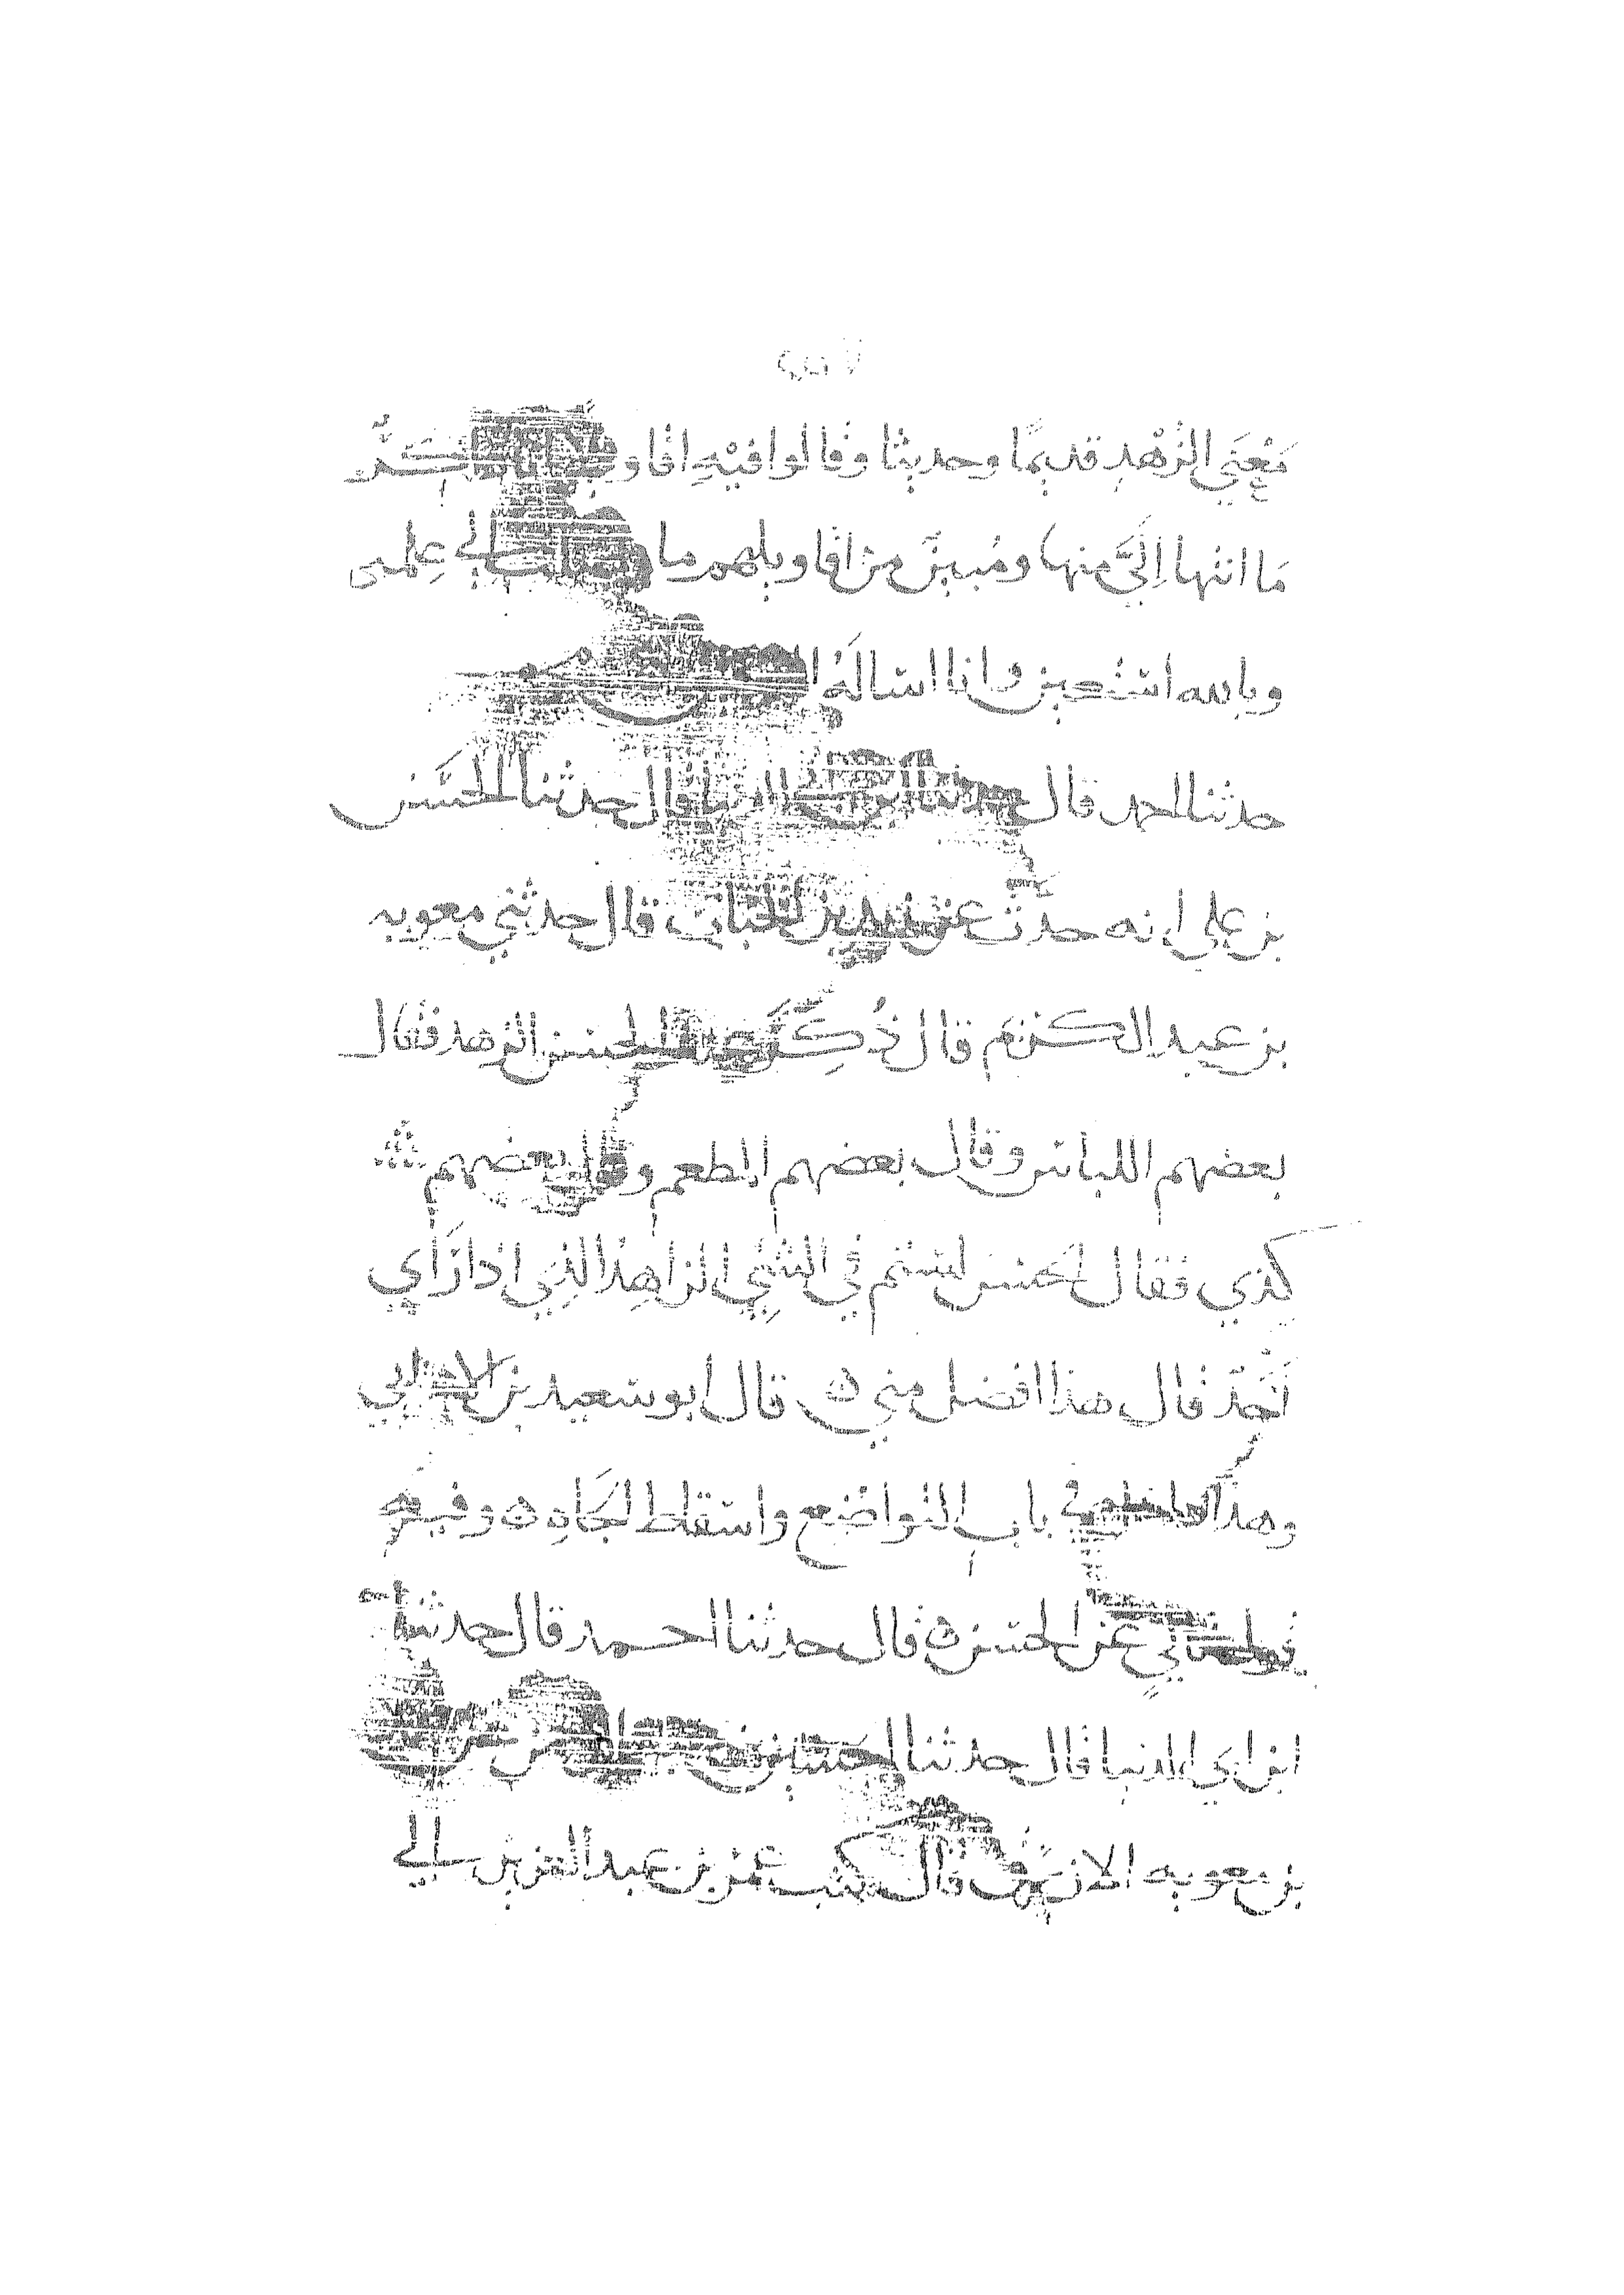 مَعْنَي الزُهْد قديمًا وحديثا وقالوا فيْهِ اقاو
مَا انتها اِليَّ منها ومُبيّنٌ من اقاويلهم ما الي عِلمى
وبالله استعين وانا اساله
حدثنا احمد قال حدثنا ابن ابي الدنيا قال حدثنا الحسَن
بن علي انه حدّث عن زيد بن الحباب قال حدثني معويه
بن عبد الكريم قال ذُكِرَ عند الحسن الزهد فقال
بعضهم اللباس وقال بعضهم المطعم وقال بعضهم
كذي فقال الحسن لستم في الشَيِّ الزاهِدُ الذِي اذا رَاي
اَحَدًا قال هذا افضل مني ه قال ابو سعيد بن الاعرابي
وهذا داخل في باب التواضع واسقاط الجَاهِ ه وفيه
عن الحسن ه قال حدثنا احمد قال حدثنا
ابن ابي الدنيا قال حدثنا الحسين بن
بن معويه الازرق قال كتب عمر بن عبد العزيز الي